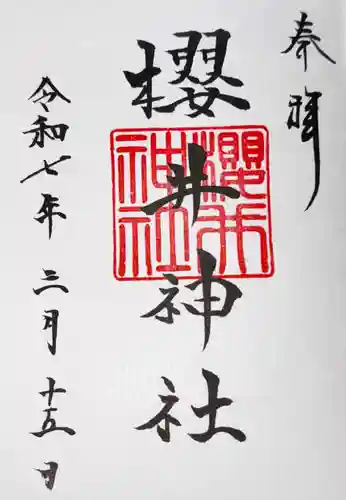 奉拝
櫻井神社
櫻井
神社
令和七年三月十五日